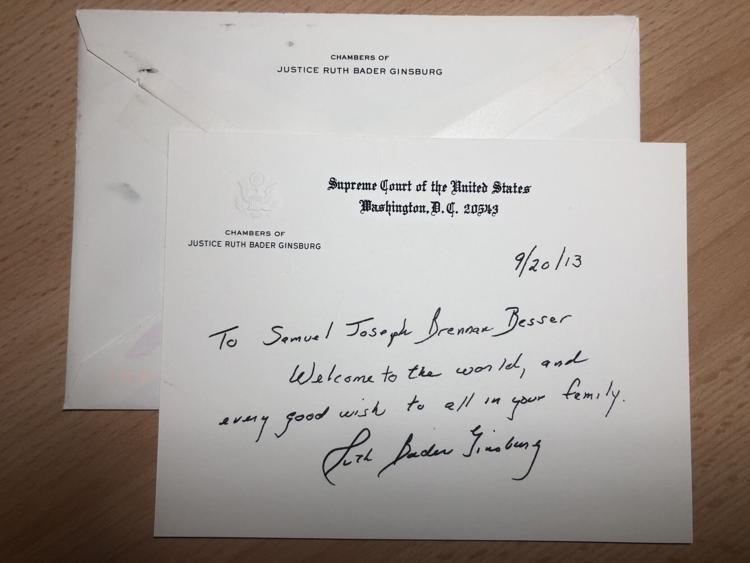 CHAMBERS OF
JUSTICE RUTH BADER GINSBURG
Supreme Court of the United States
Washington, D.C. 20543
CHAMBERS OF
JUSTICE RUTH BADER GINSBURG
9/20/13
To Samuel Joseph Brennan Besser
Welcome to the world, and
every good wish to all in your family.
Ruth Bader Ginsburg